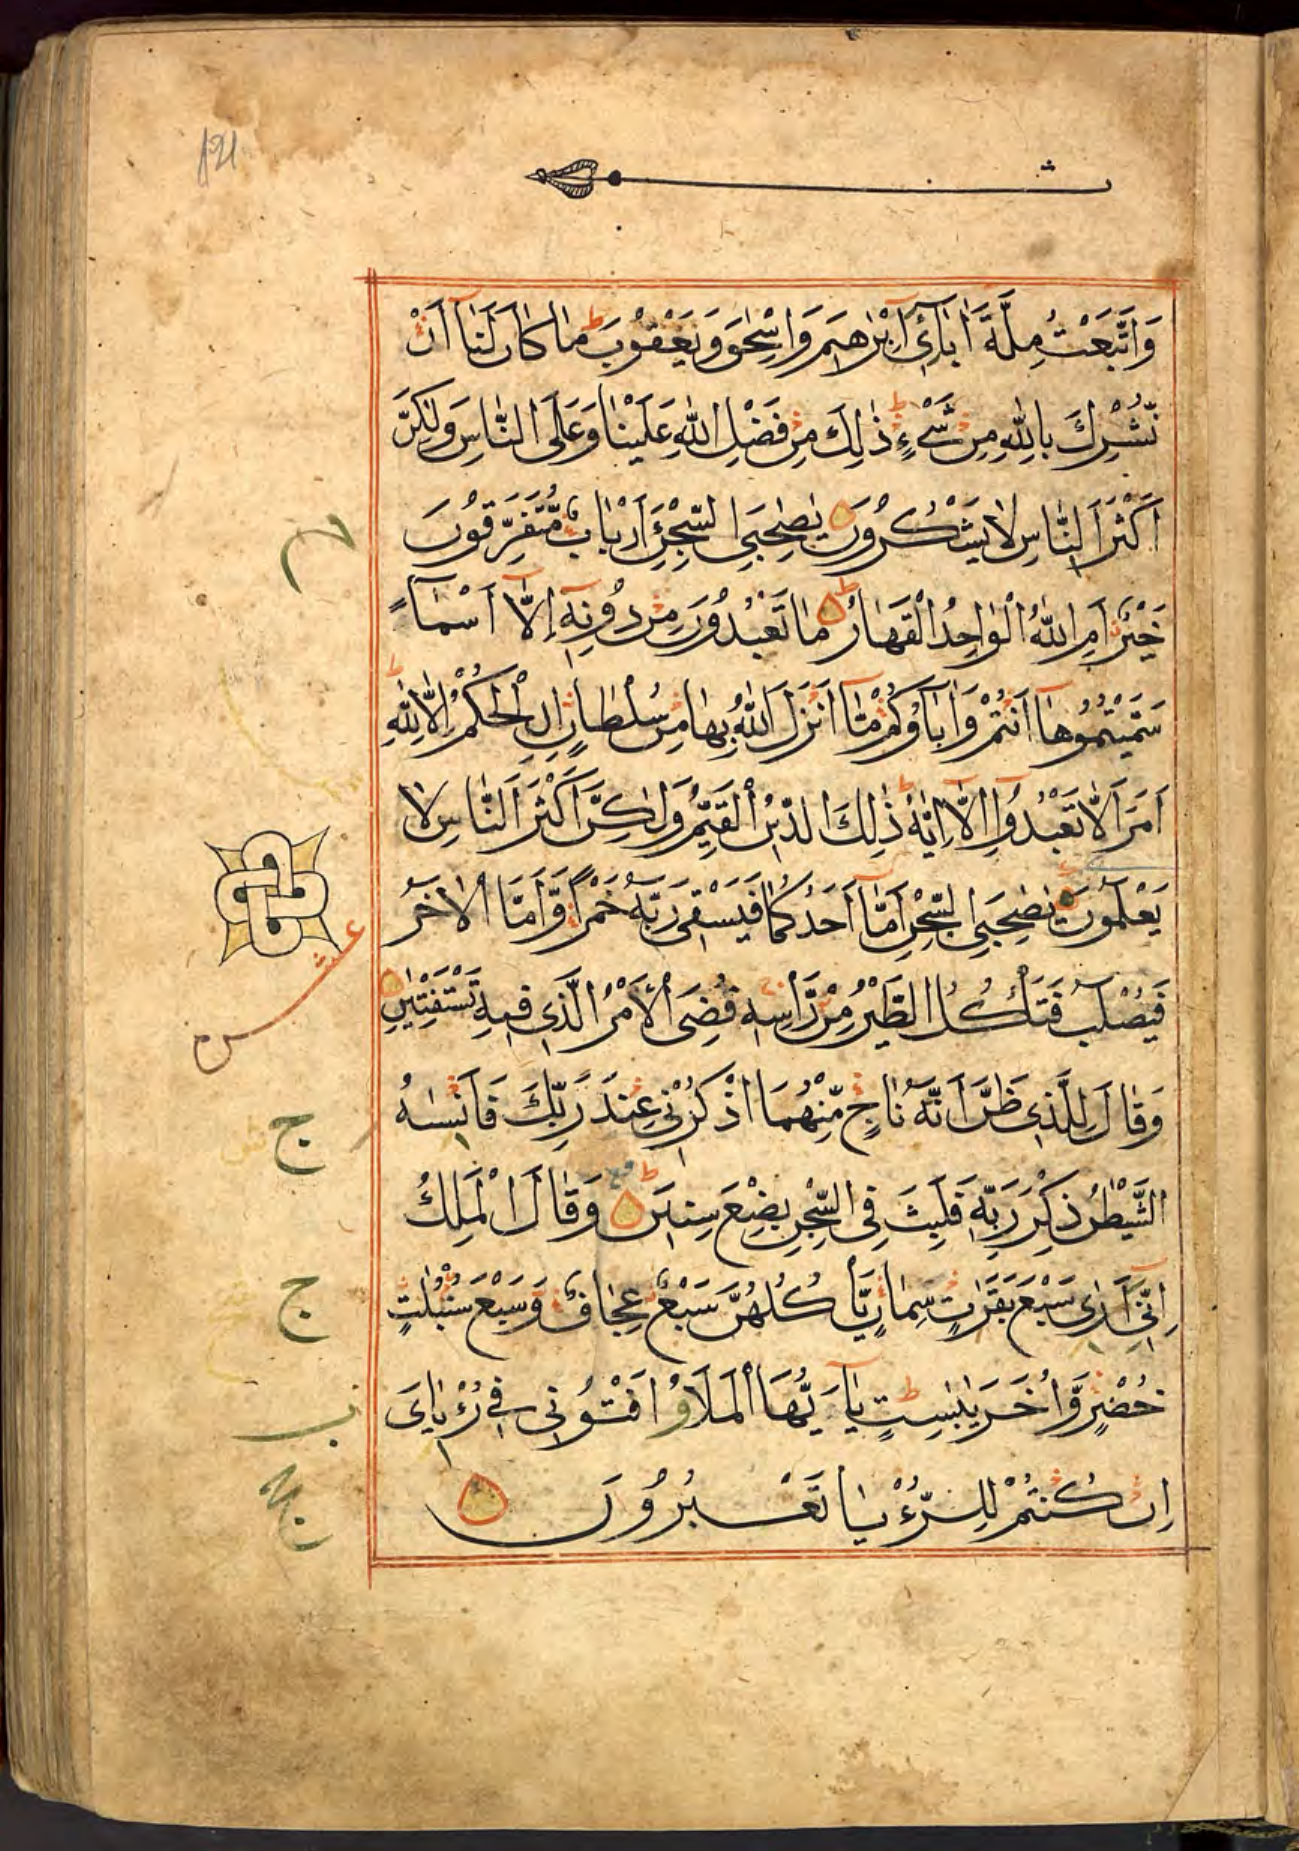 121
وَاتَّبَعْتُ مِلَّةَ اٰبَآئِیْ اِبْرٰهِیْمَ وَاِسْحٰقَ وَیَعْقُوْبَ ط مَا كَانَ لَنَآ اَنْ
نُّشْرِكَ بِاللّٰهِ مِنْ شَیْءٍ ط ذٰلِكَ مِنْ فَضْلِ اللّٰهِ عَلَیْنَا وَعَلَی النَّاسِ وَلٰكِنَّ
اَكْثَرَ النَّاسِ لَا یَشْكُرُوْنَ یٰصَاحِبَیِ السِّجْنِ ءَاَرْبَابٌ مُّتَفَرِّقُوْنَ
خَیْرٌ اَمِ اللّٰهُ الْوَاحِدُ الْقَهَّارُ ط مَا تَعْبُدُوْنَ مِنْ دُوْنِهٖٓ اِلَّآ اَسْمَآءً
سَمَّیْتُمُوْهَآ اَنْتُمْ وَاٰبَآؤُكُمْ مَّآ اَنْزَلَ اللّٰهُ بِهَا مِنْ سُلْطَانٍ اِنِ الْحُكْمُ اِلَّا لِلّٰهِ ط
اَمَرَ اَلَّا تَعْبُدُوْٓا اِلَّآ اِیَّاهُ ط ذٰلِكَ الدِّیْنُ الْقَیِّمُ وَلٰكِنَّ اَكْثَرَ النَّاسِ لَا
یَعْلَمُوْنَ یٰصَاحِبَیِ السِّجْنِ اَمَّآ اَحَدُكُمَا فَیَسْقِیْ رَبَّهٗ خَمْرًا وَّاَمَّا الْاٰخَرُ
فَیُصْلَبُ فَتَاْكُلُ الطَّیْرُ مِنْ رَّاْسِهٖ قُضِیَ الْاَمْرُ الَّذِیْ فِیْهِ تَسْتَفْتِیٰنِ
عشر
وَقَالَ لِلَّذِیْ ظَنَّ اَنَّهٗ نَاجٍ مِّنْهُمَا اذْكُرْنِیْ عِنْدَ رَبِّكَ فَاَنْسٰىهُ
ج
الشَّیْطٰنُ ذِكْرَ رَبِّهٖ فَلَبِثَ فِی السِّجْنِ بِضْعَ سِنِیْنَ ط وَقَالَ الْمَلِكُ
اِنِّیْٓ اَرٰی سَبْعَ بَقَرٰتٍ سِمَانٍ یَّاْكُلُهُنَّ سَبْعٌ عِجَافٌ وَّسَبْعَ سُنْبُلٰتٍ
ج
خُضْرٍ وَّاُخَرَ یٰبِسٰتٍ ط یٰٓاَیُّهَا الْمَلَاُ اَفْتُوْنِیْ فِیْ رُءْیَایَ
اِنْ كُنْتُمْ لِلرُّءْیَا تَعْبُرُوْنَ